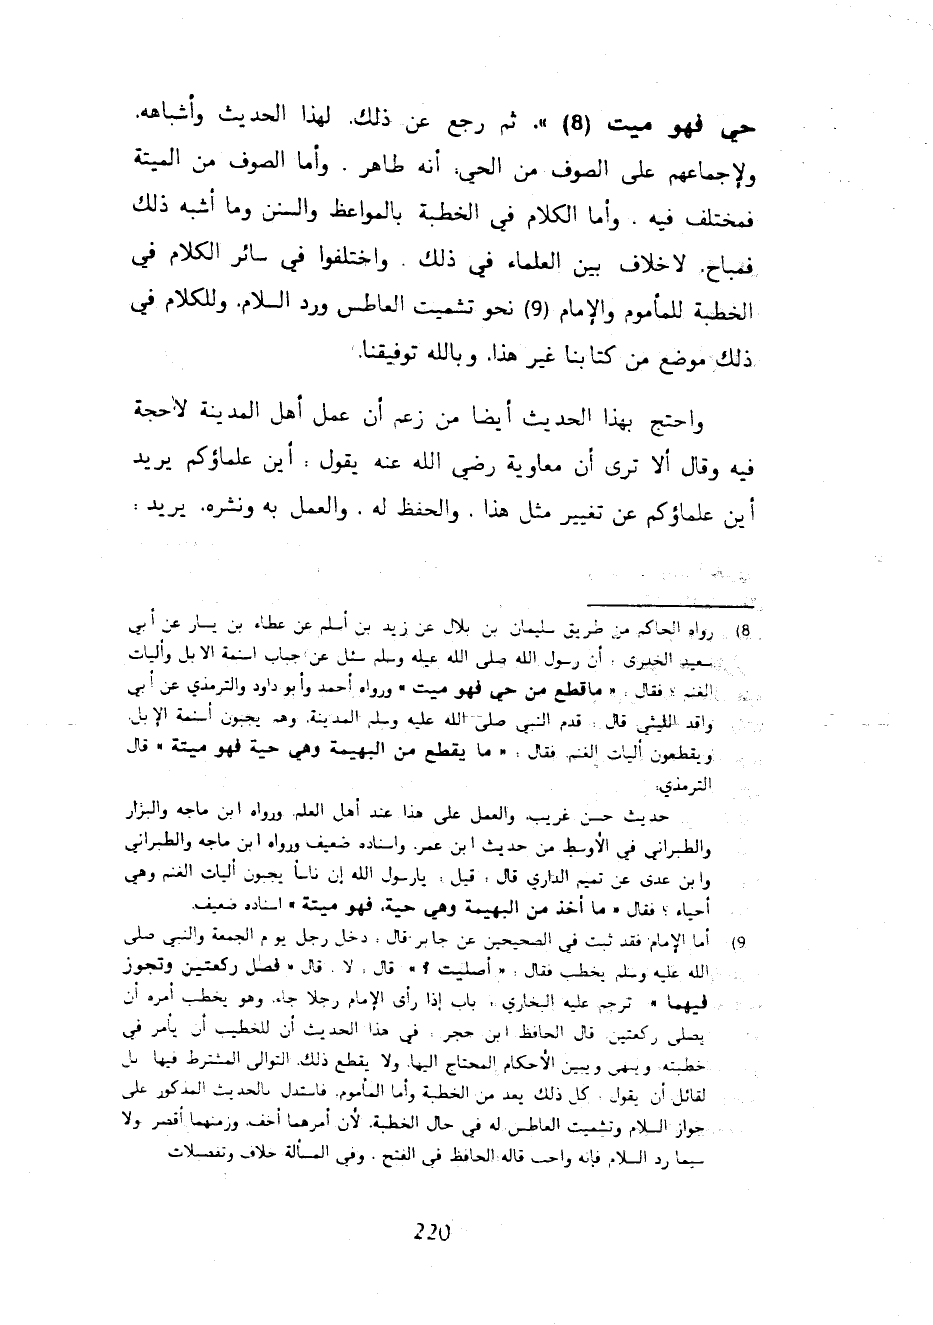 حي فهو ميت (8) ». ثم رجع عن ذلك. لهذا الحديث وأشباهه.
ولإجماعهم على الصوف من الحي: أنه طاهر . وأما الصوف من الميتة
فمختلف فيه . وأما الكلام في الخطبة بالمواعظ والسنن وما أشبه ذلك
فمباح. لاخلاف بين العلماء في ذلك . واختلفوا في سائر الكلام في
الخطبة للمأموم والإمام (9) نحو تشميت العاطس ورد السلام. وللكلام في
ذلك موضع من كتابنا غير هذا. وبالله توفيقنا.
واحتج بهذا الحديث أيضا من زعم أن عمل أهل المدينة لاحجة
فيه وقال ألا ترى أن معاوية رضي الله عنه يقول : أين علماؤكم يريد
أين علماؤكم عن تغيير مثل هذا . والحفظ له . والعمل به ونشره. يريد :
8) رواه الحاكم من طريق سليمان بن بلال عن زيد بن أسلم عن عطاء بن يسار عن أبي
سعيد الخدرى : أن رسول الله صلى الله عيله وسلم سئل عن جباب اسنمة الابل وأليات
الغنم ؟ فقال : « ماقطع من حي فهو ميت » ورواه أحمد وأبو داود والترمذي عن أبي
واقد الليثي قال : قدم النبي صلى الله عليه وسلم المدينة. وهم يجبون أسنمة الإبل.
ويقطعون أليات الغنم. فقال : « ما يقطع من البهيمة وهي حية فهو ميتة » قال
الترمذي:
حديث حسن غريب. والعمل على هذا عند أهل العلم. ورواه ابن ماجه والبزار
والطبراني في الأوسط من حديث ابن عمر. واسناده ضعيف ورواه ابن ماجه والطبراني
وابن عدى عن تميم الداري قال : قيل : يارسول الله إن ناسا يجبون أليات الغنم وهي
أحياء ؟ فقال « ما أخذ من البهيمة وهي حية. فهو ميتة » اسناده ضعيف.
9) أما الإمام فقد ثبت في الصحيحين عن جابر قال : دخل رجل يوم الجمعة والنبي صلى
الله عليه وسلم يخطب فقال : « أصليت ؟ » قال : لا . قال « فصل ركعتين وتجوز
فيهما » ترجم عليه البخاري : باب إذا رأى الإمام رجلا جاء. وهو يخطب أمره أن
يصلى ركعتين. قال الحافظ ابن حجر : في هذا الحديث أن للخطيب أن يأمر في
خطبته وينهى ويبين الأحكام المحتاج اليها. ولا يقطع ذلك. التوالى المشترط فيها بل
لقائل أن يقول : كل ذلك يعد من الخطبة وأما المأموم. فاستدل بالحديث المذكور على
جواز السلام وتشميت العاطس له في حال الخطبة. لأن أمرهما أخف. وزمنهما أقصر ولا
سيما رد السلام. فإنه واجب قاله الحافظ في الفتح . وفي المسألة خلاف وتفصيلات
220